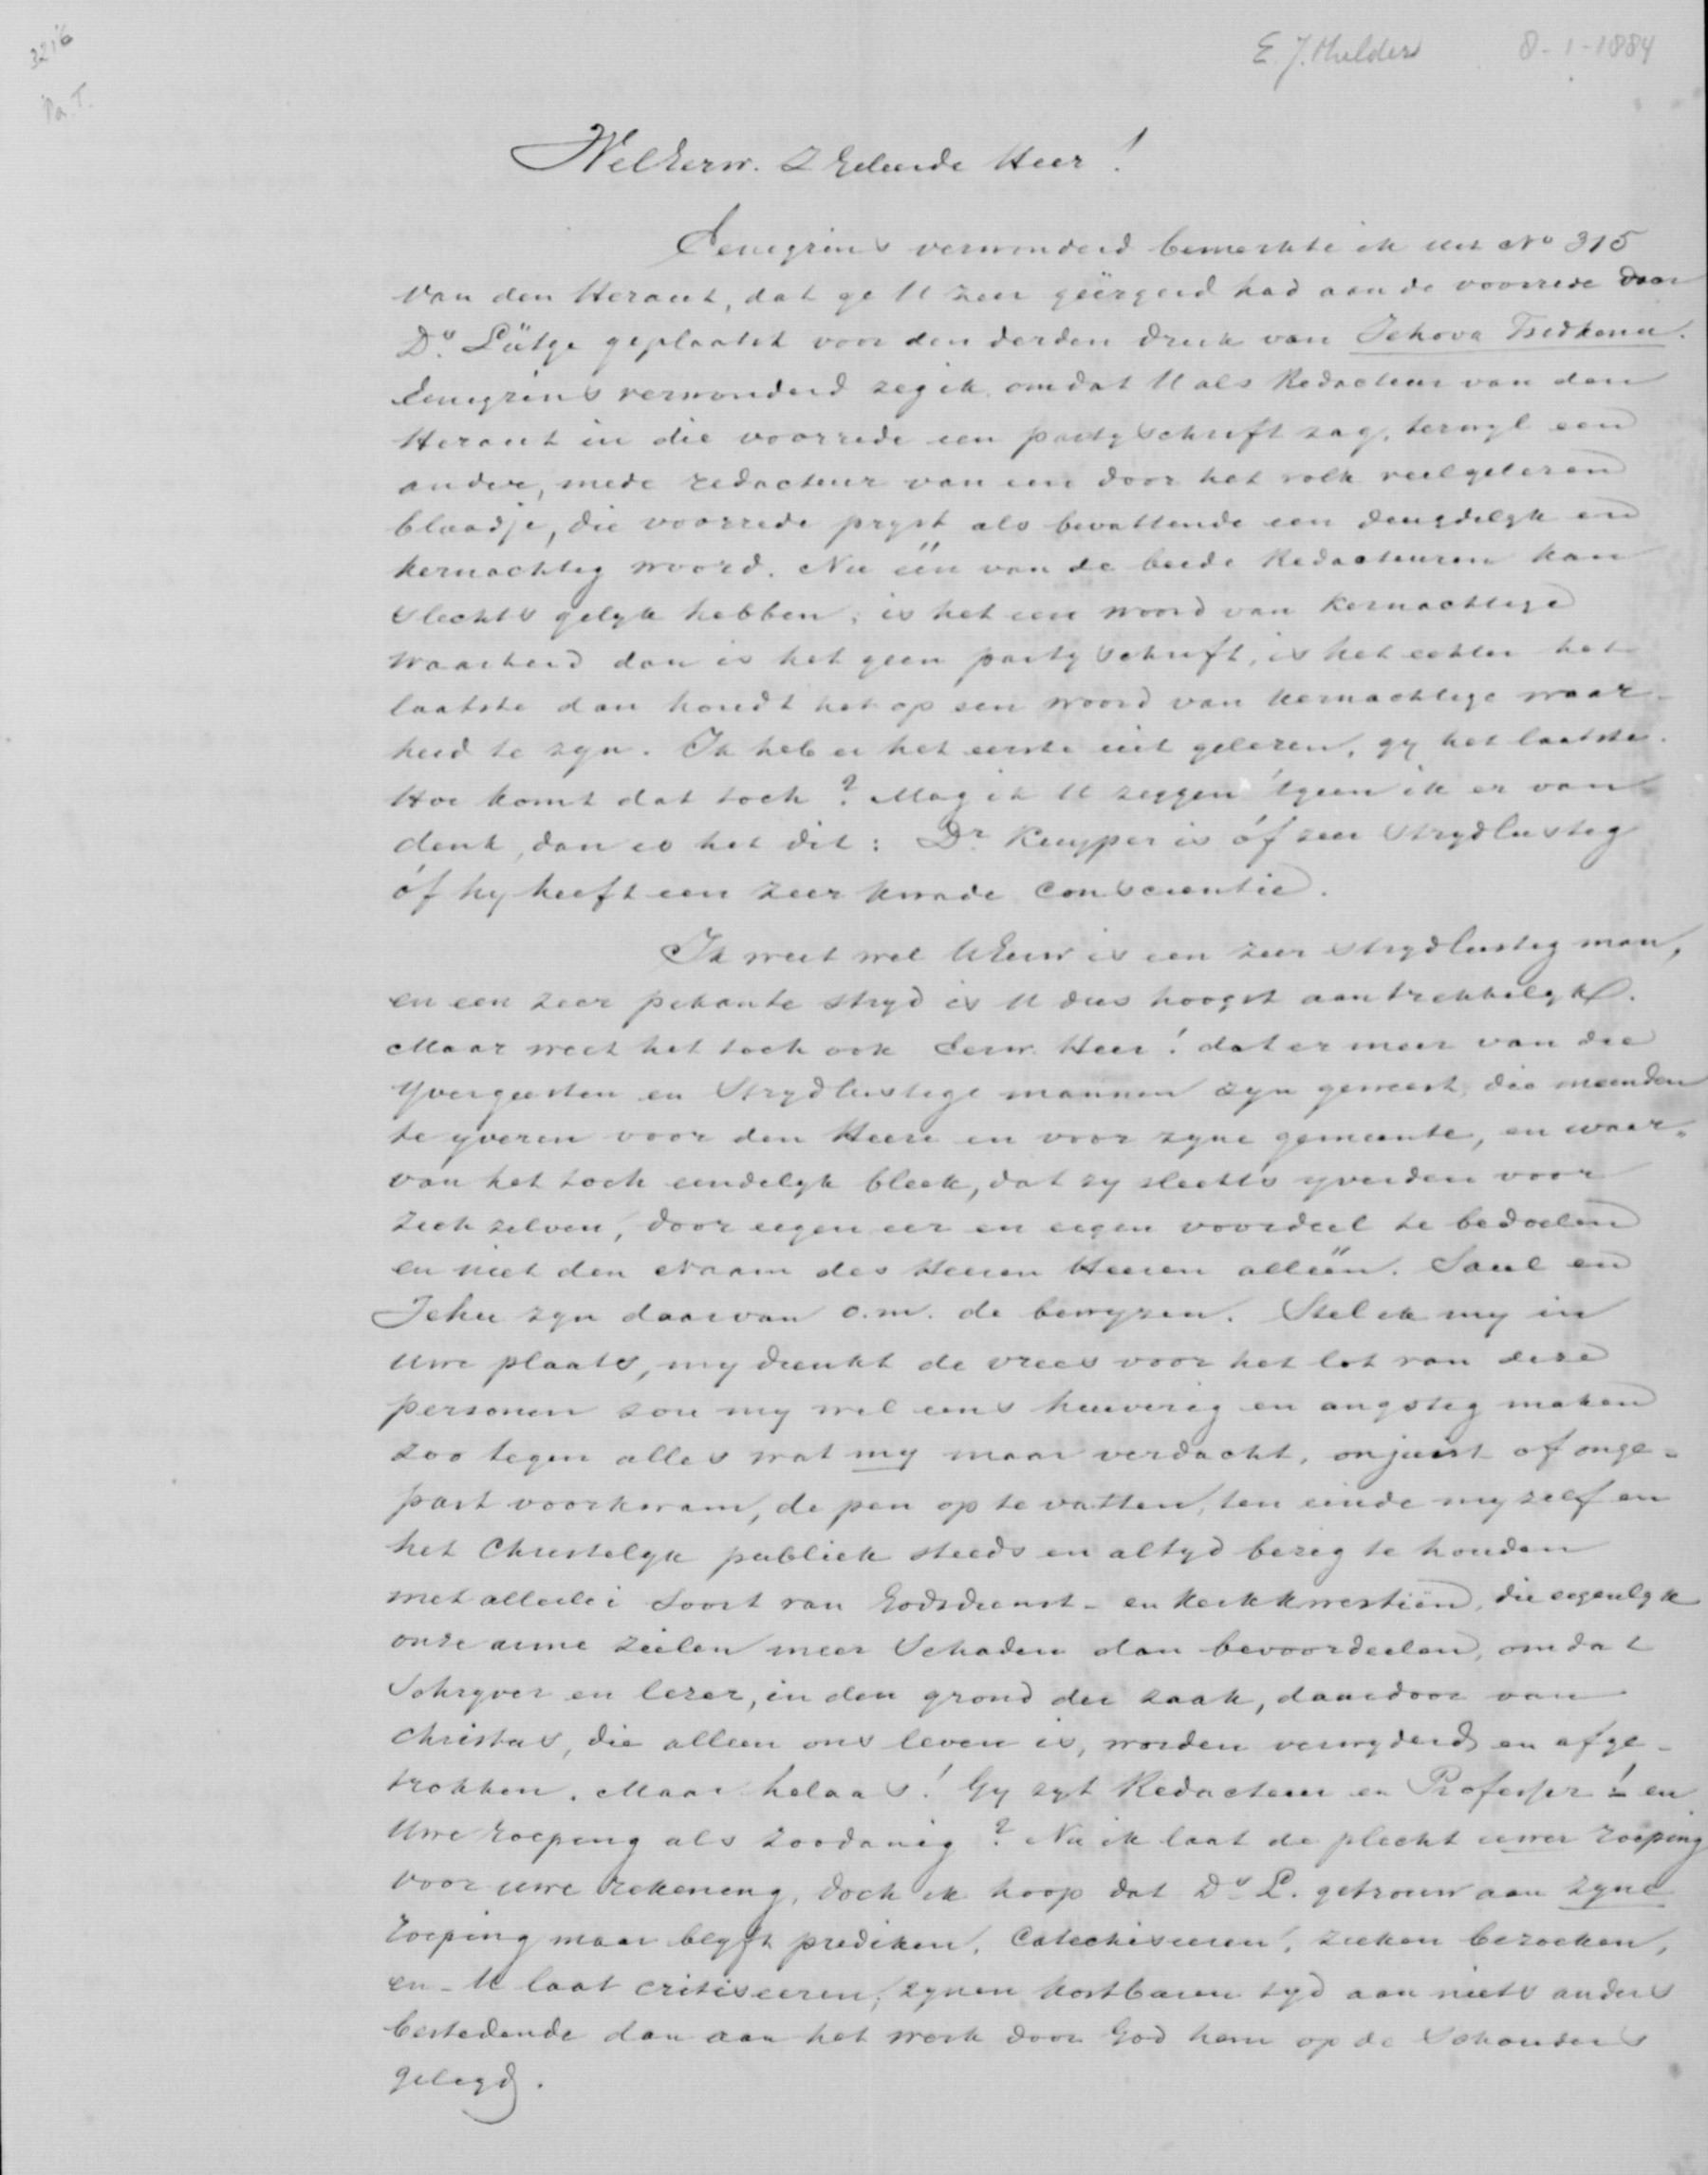 3216
Pa. T.
E. J. Mulders 8-1-1884
WelEerw. Z Geleerde Heer!
Eenigzins verwonderd bemerkte ik uit No 315
van den Heraut, dat ge U zeer geërgerd had aan de voorrede door
Ds. Lütge geplaatst voor den derden druk van Jehova Tsidkenu.
Eenigzins verwonderd zeg ik, omdat U als Redacteur van den
Heraut in die voorrede een partyschrift zag, terwyl een
ander, mede redacteur van een door het volk veelgelezen
blaadje, die voorrede pryst als bevattende een deugdelyk en
kernachtig woord. Nu één van de beide Redacteuren kan
slechts gelyk hebben; is het een woord van kernachtige
waarheid dan is het geen partyschrift, is het echter het
laatste dan houdt het op een woord van kernachtige waar-
heid te zyn. Ik heb er het eerste uit gelezen, gy het laatste.
Hoe komt dat toch? Mag ik U zeggen 'tgeen ik er van
denk, dan is het dit: Dr. Kuyper is óf zeer strydlustig
óf hy heeft een zeer kwade conscientie.
Ik weet wel UEerw is een zeer strydlustig man,
en een zeer pikante stryd is U dus hoogst aantrekkelyk.
Maar weet het toch ook Eerw. Heer! dat er meer van die
Yvergeesten en Strydlustige mannen zyn geweest, die meenden
te yveren voor den Heere en voor zyne gemeente, en waar-
van het toch eindelyk bleek, dat zy slechts yverden voor
zich zelven, door eigen eer en eigen voordeel te bedoelen
en niet den Naam des Heeren Heeren alléén. Saul en
Jehu zyn daarvan o.m. de bewyzen. Stel ik my in
Uwe plaats, my dunkt de vrees voor het lot van deze
personen zou my wel eens huiverig en angstig maken
zoo tegen alles wat my maar verdacht, onjuist of onge-
past voorkwam, de pen op te vatten, ten einde my zelf en
het Christelyk publiek steeds en altyd bezig te houden
met allerlei soort van Godsdienst- en kerkkwestiën, die eigenlyk
onze arme zielen meer schaden dan bevoordeelen, omdat
Schryver en lezer, in den grond der zaak, daardoor van
Christus, die alleen ons leven is, worden verwyderd en afge-
trokken. Maar helaas! Gy zyt Redacteur en Professor! en
Uwe roeping als zoodanig? Nu ik laat de plicht uwer roeping
voor uwe rekening, doch ik hoop dat Ds. L. getrouw aan zyne
roeping maar blyft prediken, Catechiseeren, zieken bezoeken,
en - U laat critiseeren, zynen kostbaren tyd aan niets anders
bestedende dan aan het werk door God hem op de Schouders
gelegd.